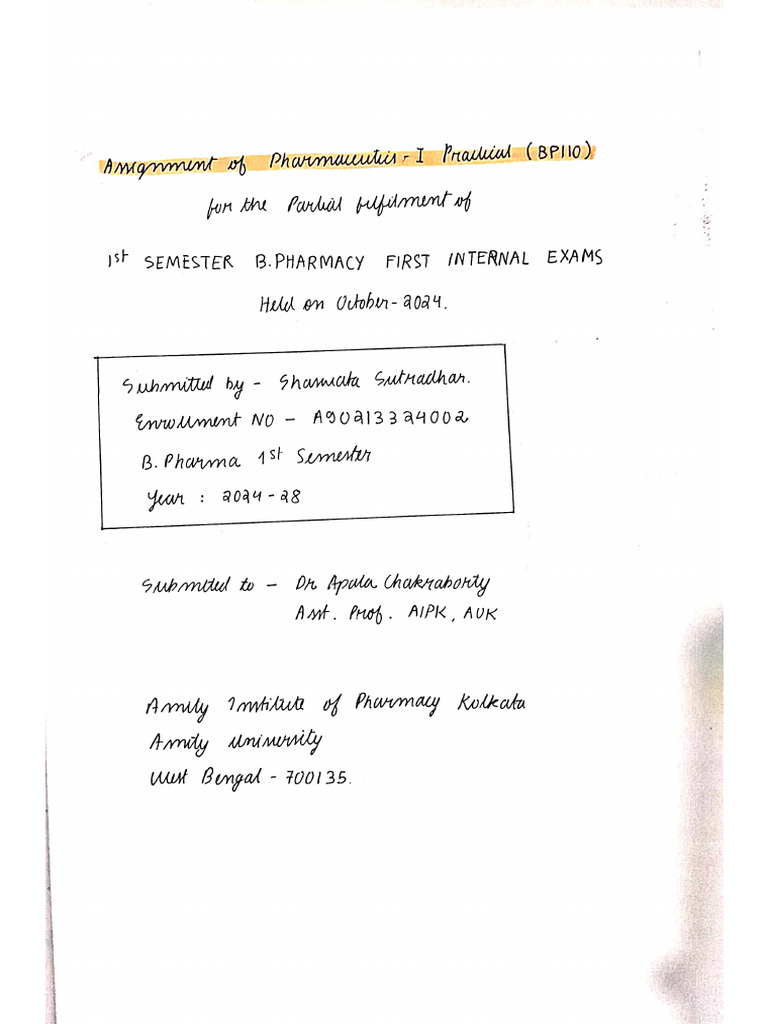 Assignment of Pharmaceutics - I Practical (BP110)
for the Partial fulfilment of
1st SEMESTER B.PHARMACY FIRST INTERNAL EXAMS
Held on October-2024.
Submitted by - Shamata Sutradhar.
Enrollment NO - A90213324002
B. Pharma 1st Semester
Year : 2024-28
Submitted to - Dr Apala Chakraborty
Asst. Prof. AIPK, AUK
Amity Institute of Pharmacy Kolkata
Amity University
West Bengal - 700135.